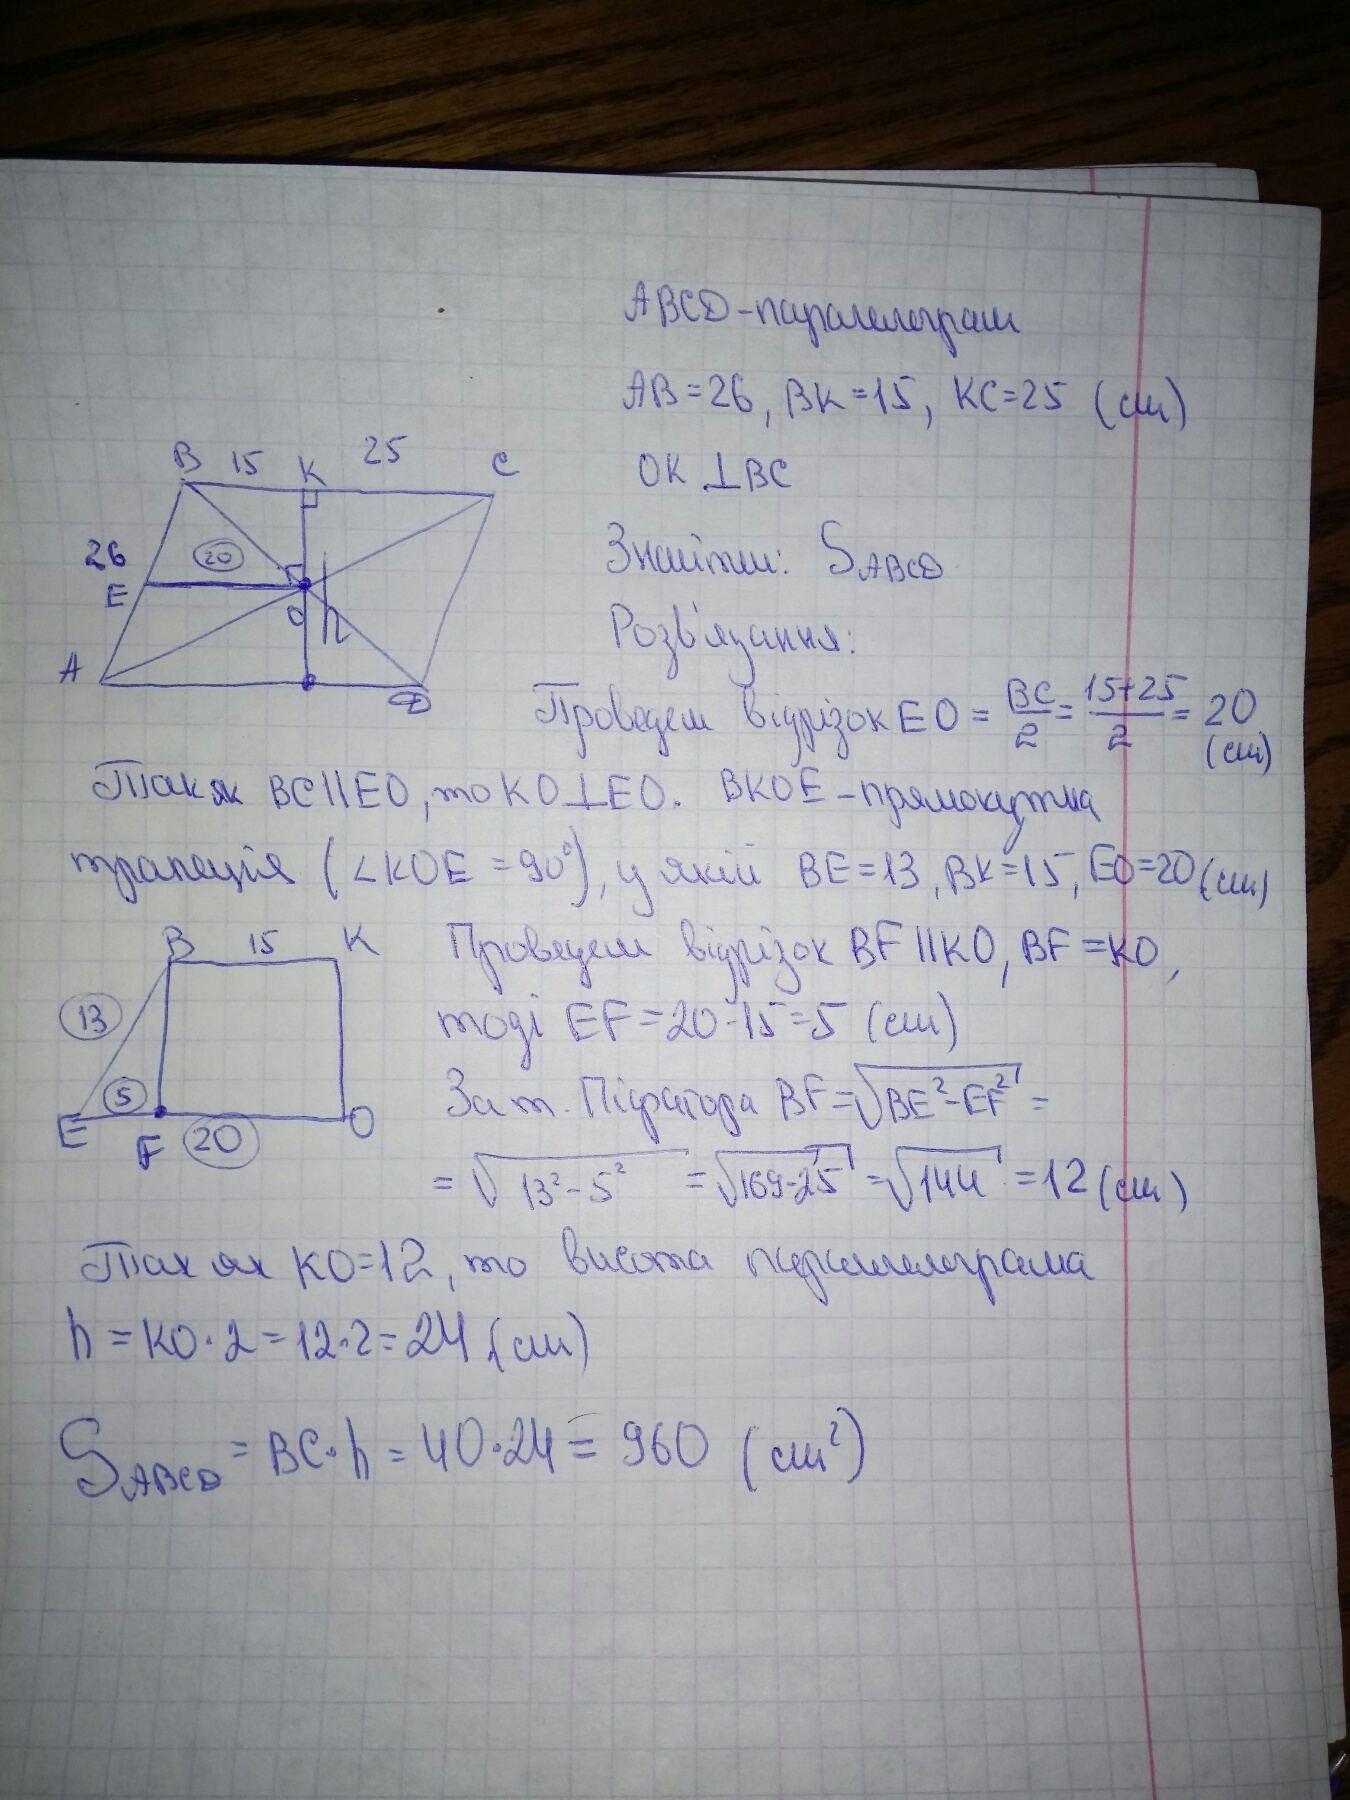 ABCD-паралелограм
AB=26, BK=15, KC=25 (см)
OK⊥BC
Знайти: S_ABCD
Розв'язання:
B 15 K 25 C
26
20
E
O h
A D
Проведем відрізок EO = BC/2 = (15+25)/2 = 20 (см)
Так як BC||EO, то KO⊥EO. BKOE-прямокутна
трапеція (∠KOE =90°), у якій BE=13, BK=15, EO=20(см)
B 15 K
13
5
E F 20 O
Проведем відрізок BF||KO, BF=KO,
тоді EF=20-15=5 (см)
За т. Піфагора BF=√(BE²-EF²) =
= √(13²-5²) = √(169-25) = √144 = 12 (см)
Так як KO=12, то висота паралелограма
h=KO·2=12·2=24 (см)
S_ABCD = BC·h = 40·24 = 960 (см²)